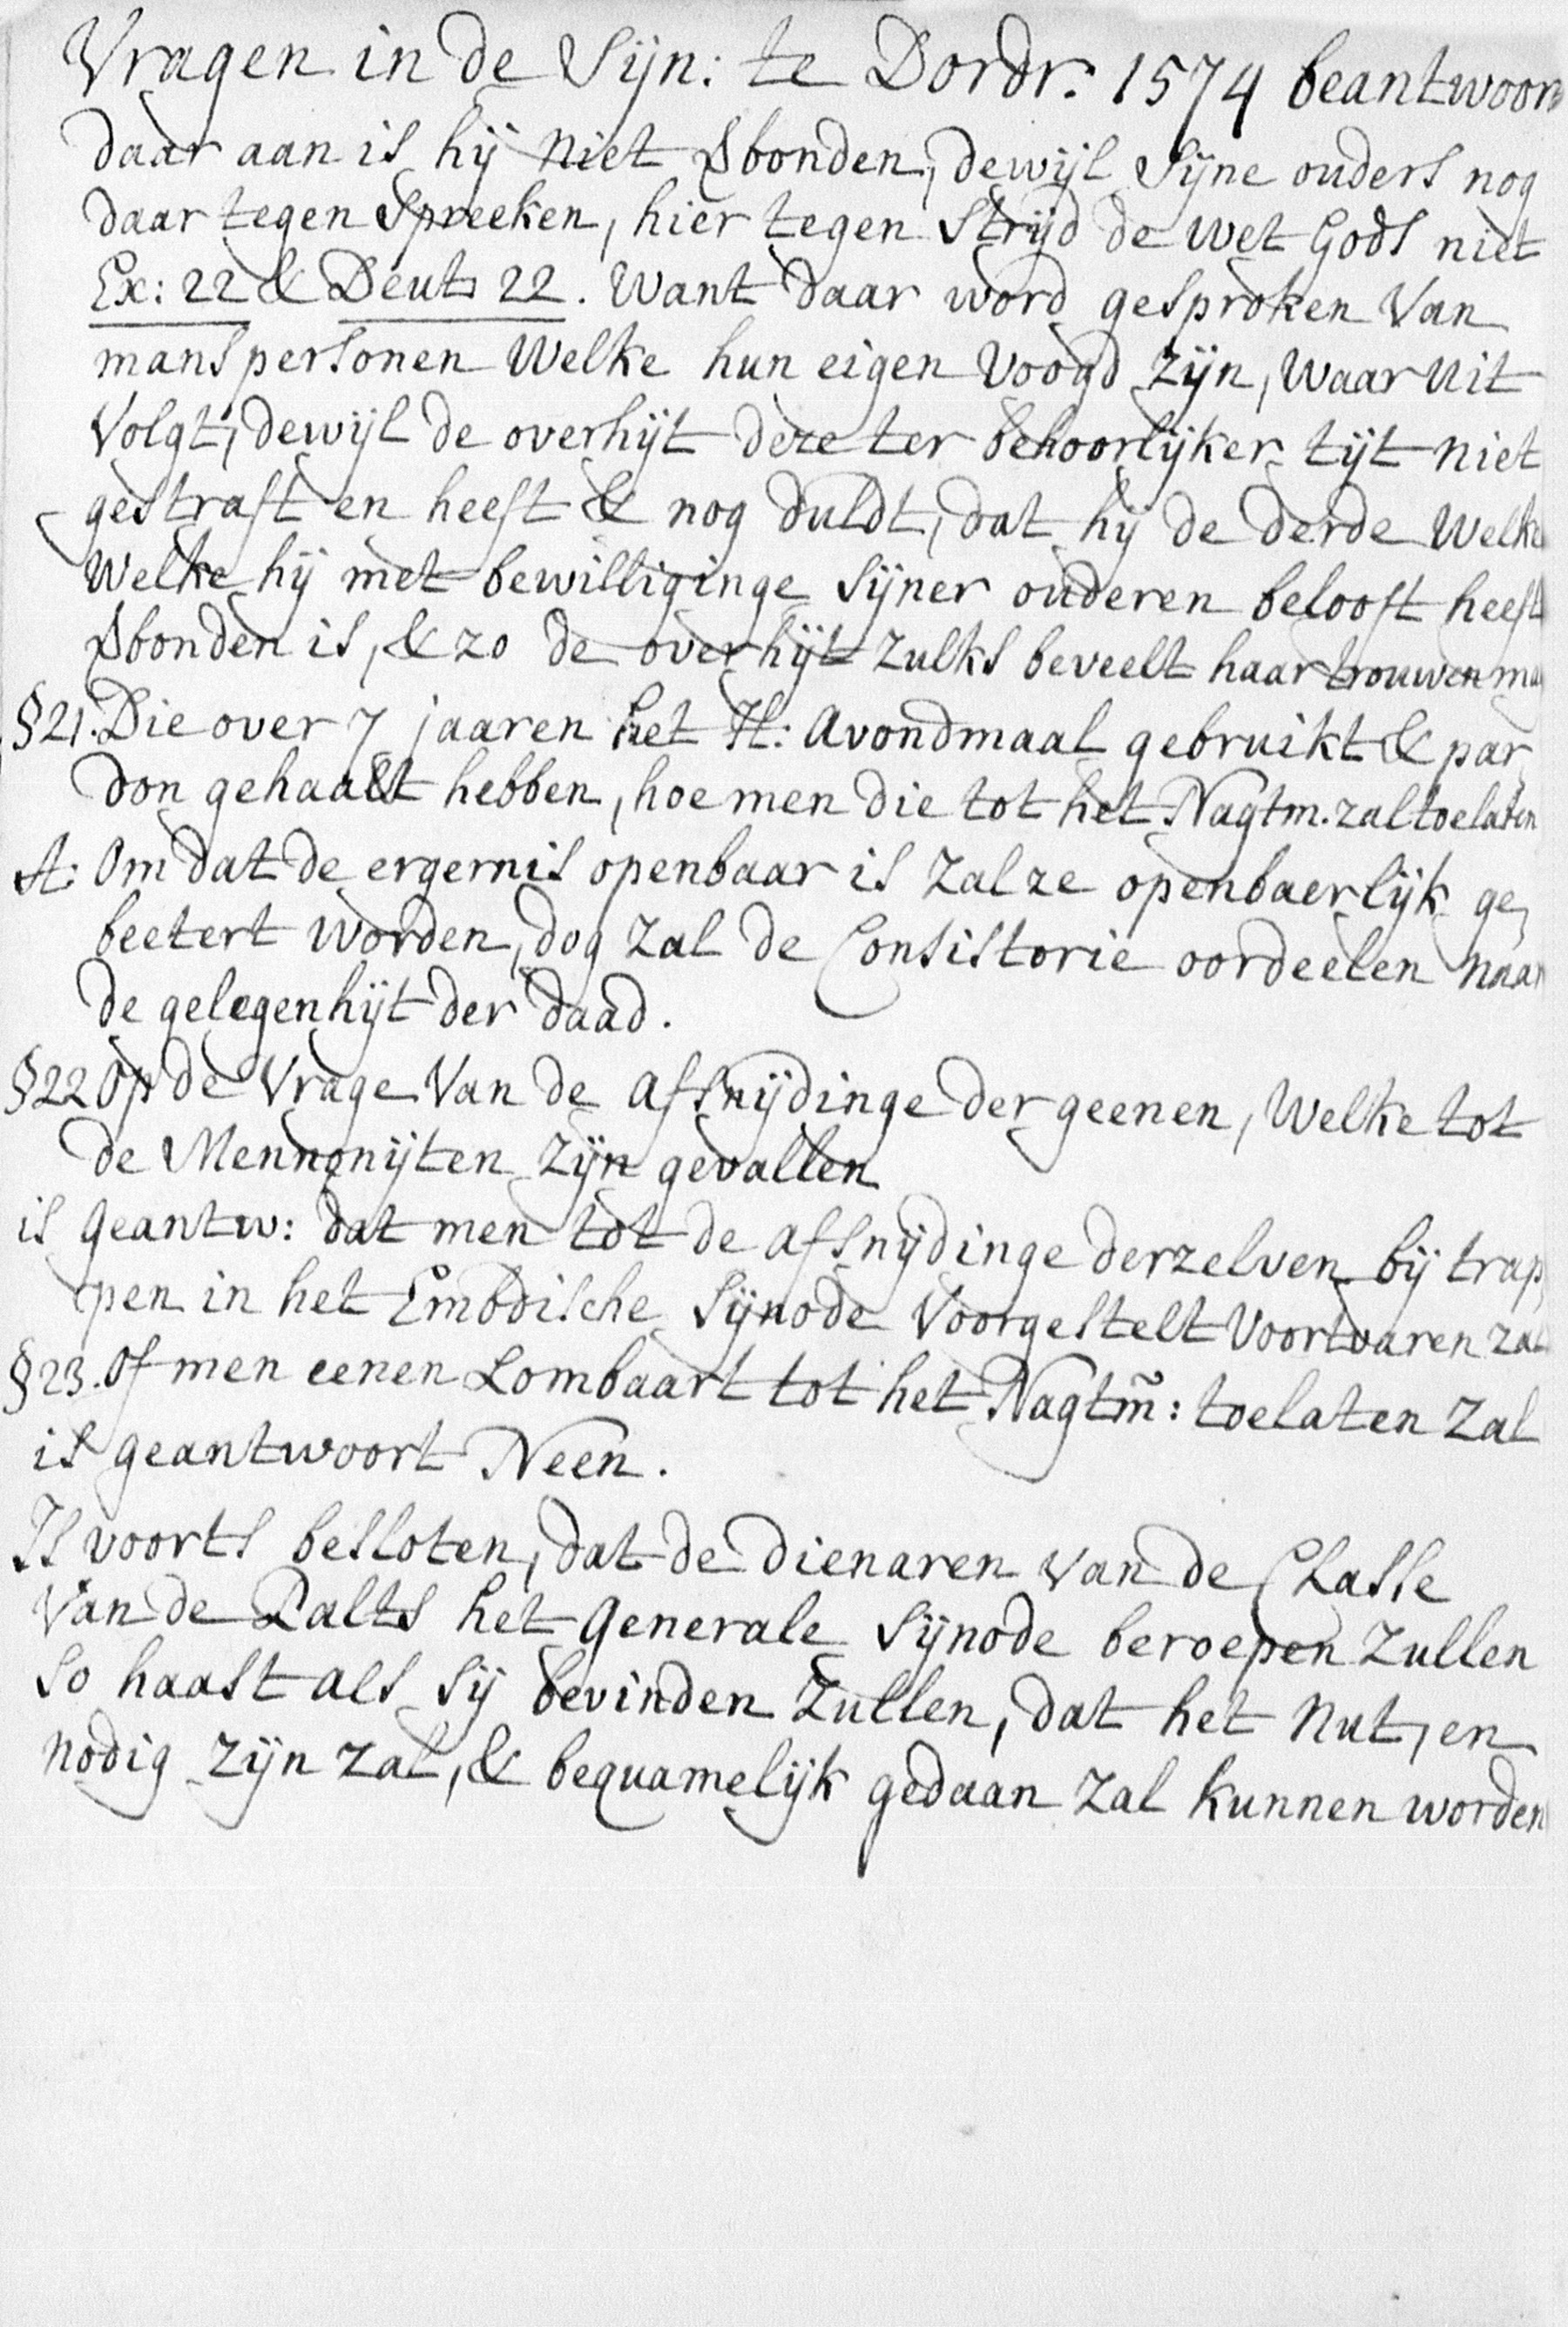 Vragen in de Sijn: te Dordr. 1574 beantwoor
daar aan is hij niet Vbonden, dewijl Sijne ouders nog
daar tegen Spreeken, hier tegen Strijd de wet Gods niet
Ex: 22 & Deut: 22. Want daar word gesproken Van
manspersonen Welke hun eigen Voogd zijn, waar uit
Volgt, dewijl de overhijt deze ter behoorlijker tijt niet
gestraft en heeft & nog duldt, dat hij de derde Welke
Welke hij met bewilliginge Sijner ouderen belooft heeft
Vbonden is, & zo de overhijt zulks beveelt haar trouwen
§21. Die over 7 jaaren het H: Avondmaal gebruikt & par,
don gehaalt hebben, hoe men die tot het Nagtm. zal toelaten
A: Om dat de ergernis openbaar is zal ze openbaerlijk ge,
beetert worden, dog zal de Consistorie oordeelen naar
de gelegenhijt der daad.
§22 Op de Vrage Van de afsnijdinge der geenen, Welke tot
de Mennonijten zijn gevallen
is geantw: dat men tot de afsnijdinge derzelven bij trap,
pen in het Embdische Sijnode Voorgestelt Voortvaren zal
§23. Of men eenen Lombaart tot het Nagtm̃: toelaten zal
is geantwoort Neen.
Is voorts besloten, dat de Dienaren van de Classe
Van de Palts het Generale Sijnode beroepen zullen
so haast als sij bevinden zullen, dat het nut, en
nodig zijn zal, & bequamelijk gedaan zal kunnen worden